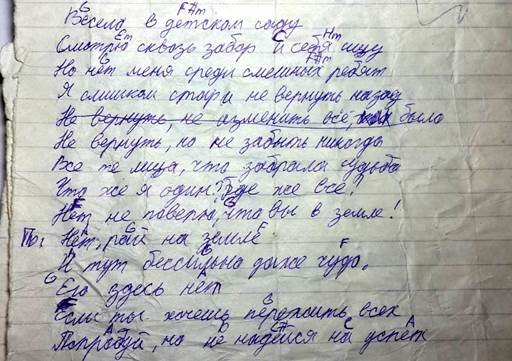 G F#m
Весело в детском саду
Em C Hm
Смотрю сквозь забор и себя ищу
G F#m
Но нет меня среди смешных ребят
Я слишком стар и не вернуть назад
Не вернуть, не изменить всё, было
Не вернуть, но не забыть никогда
Все те лица, что забрала судьба
Что же я один? Где же все?
Нет, не поверю, что вы в земле!
G E
Пр: Нет, рай на земле
F
И тут бессильно даже чудо.
G
Его здесь нет
G
Если ты хочешь пережить всех
A C# C A
Попробуй, но не надейся на успех